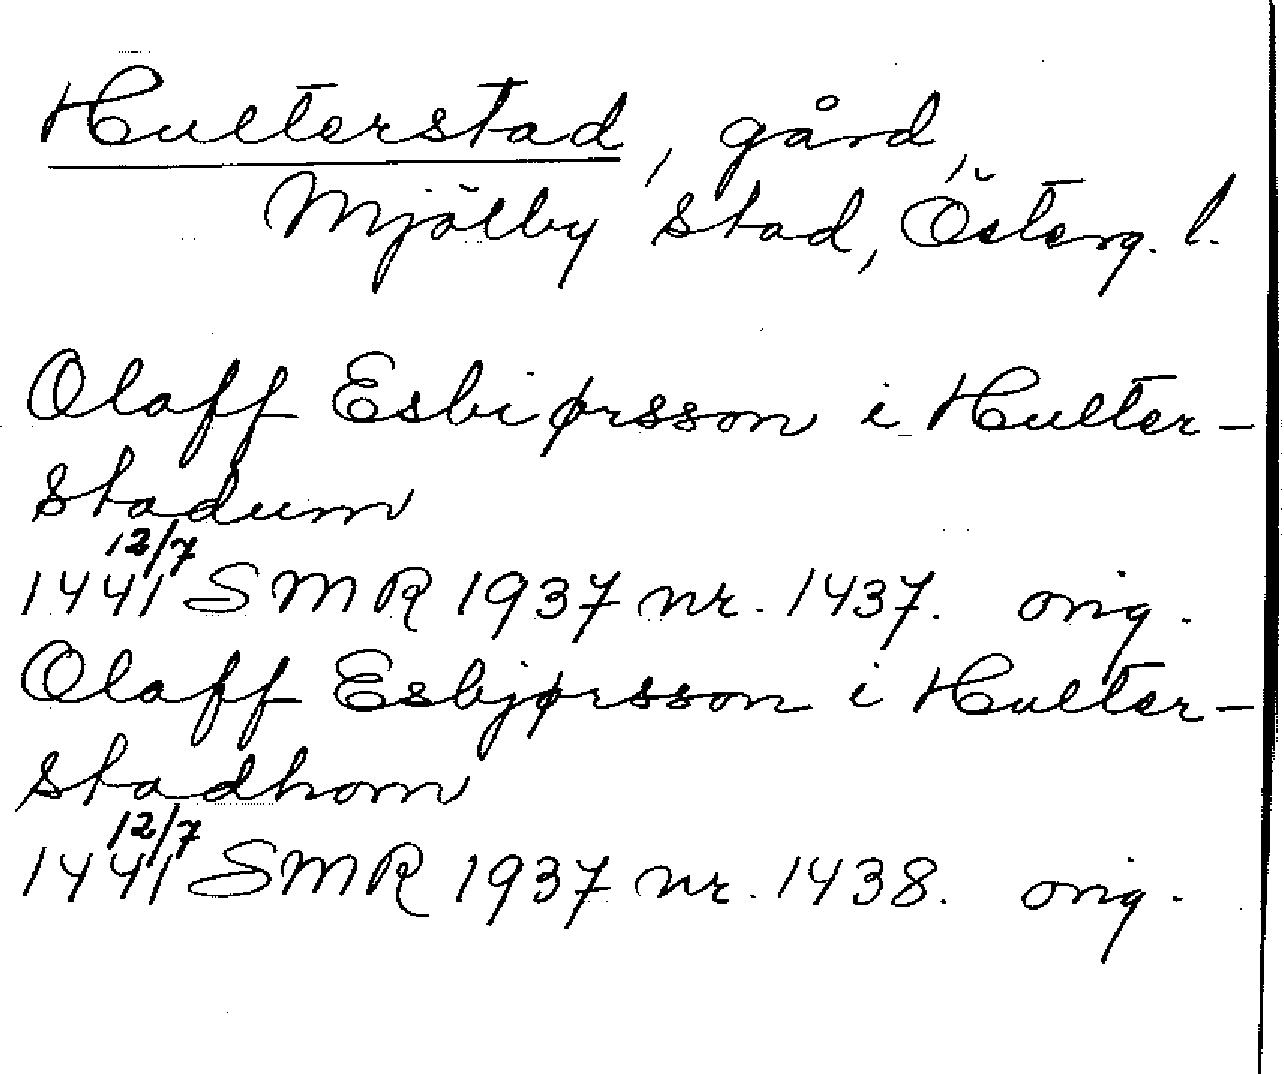 Hulterstad, gård,
Mjölby stad, Österg. l.
Olaff Esbiørsson i Hulter-
stadum
1441 12/7 SMR 1937 nr. 1437. orig.
Olaff Esbjørsson i Hulter-
stadhom
1441 12/7 SMR 1937 nr. 1438. orig.